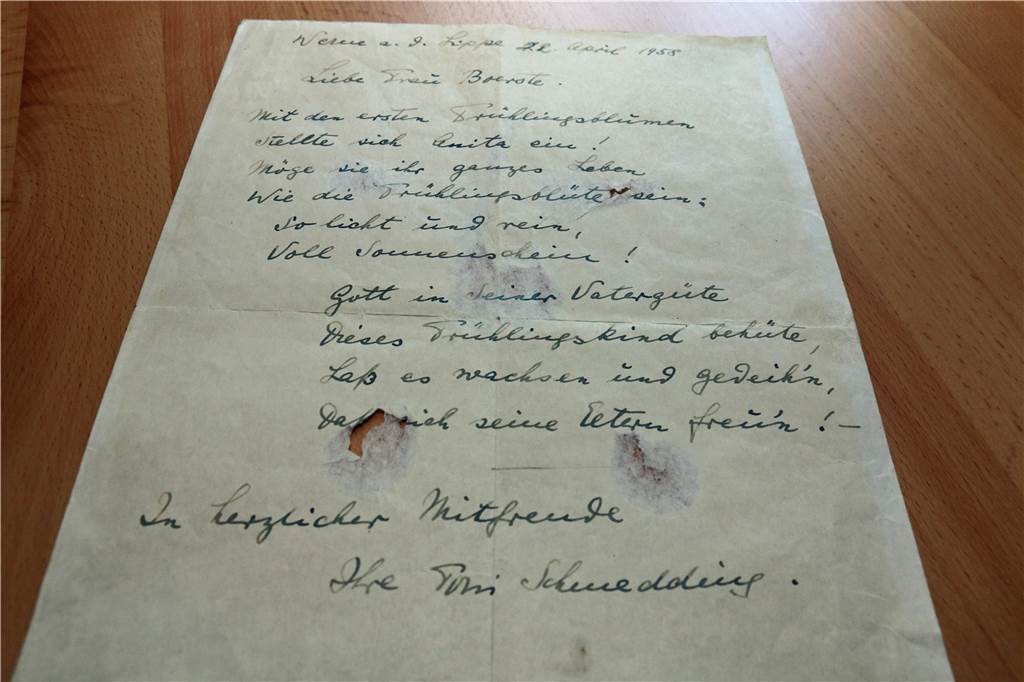 Werne a. d. Lippe 22. April 1955
Liebe Frau Boerste.
Mit den ersten Frühlingsblumen
stellte sich Anita ein!
Möge sie ihr ganzes Leben
Wie die Frühlingsblüte sein:
So licht und rein,
Voll Sonnenschein!
Gott in seiner Vatergüte
Dieses Frühlingskind behüte,
Laß es wachsen und gedeih'n,
Daß sich seine Eltern freu'n! –
In herzlicher Mitfreude
Ihre Toni Schmedding.